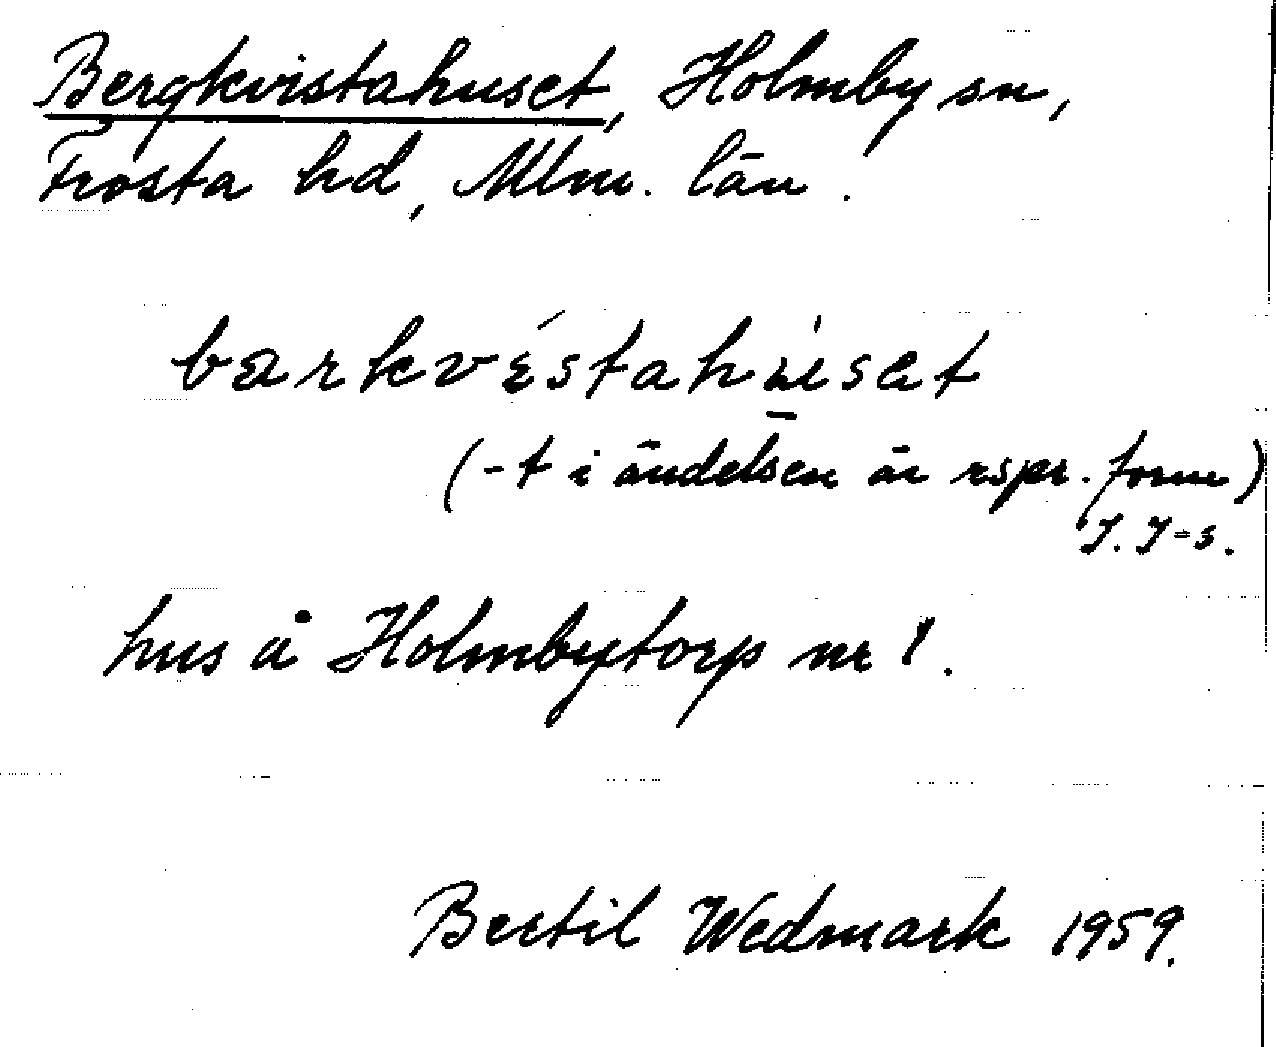 Bergkvistahuset, Holmby sn,
Frosta hd, Mlm. län.
barkvéstahùset
(-t i ändelsen är rspr. form)
J. J-s.
hus å Holmbytorp nr 1.
Bertil Wedmark 1959.